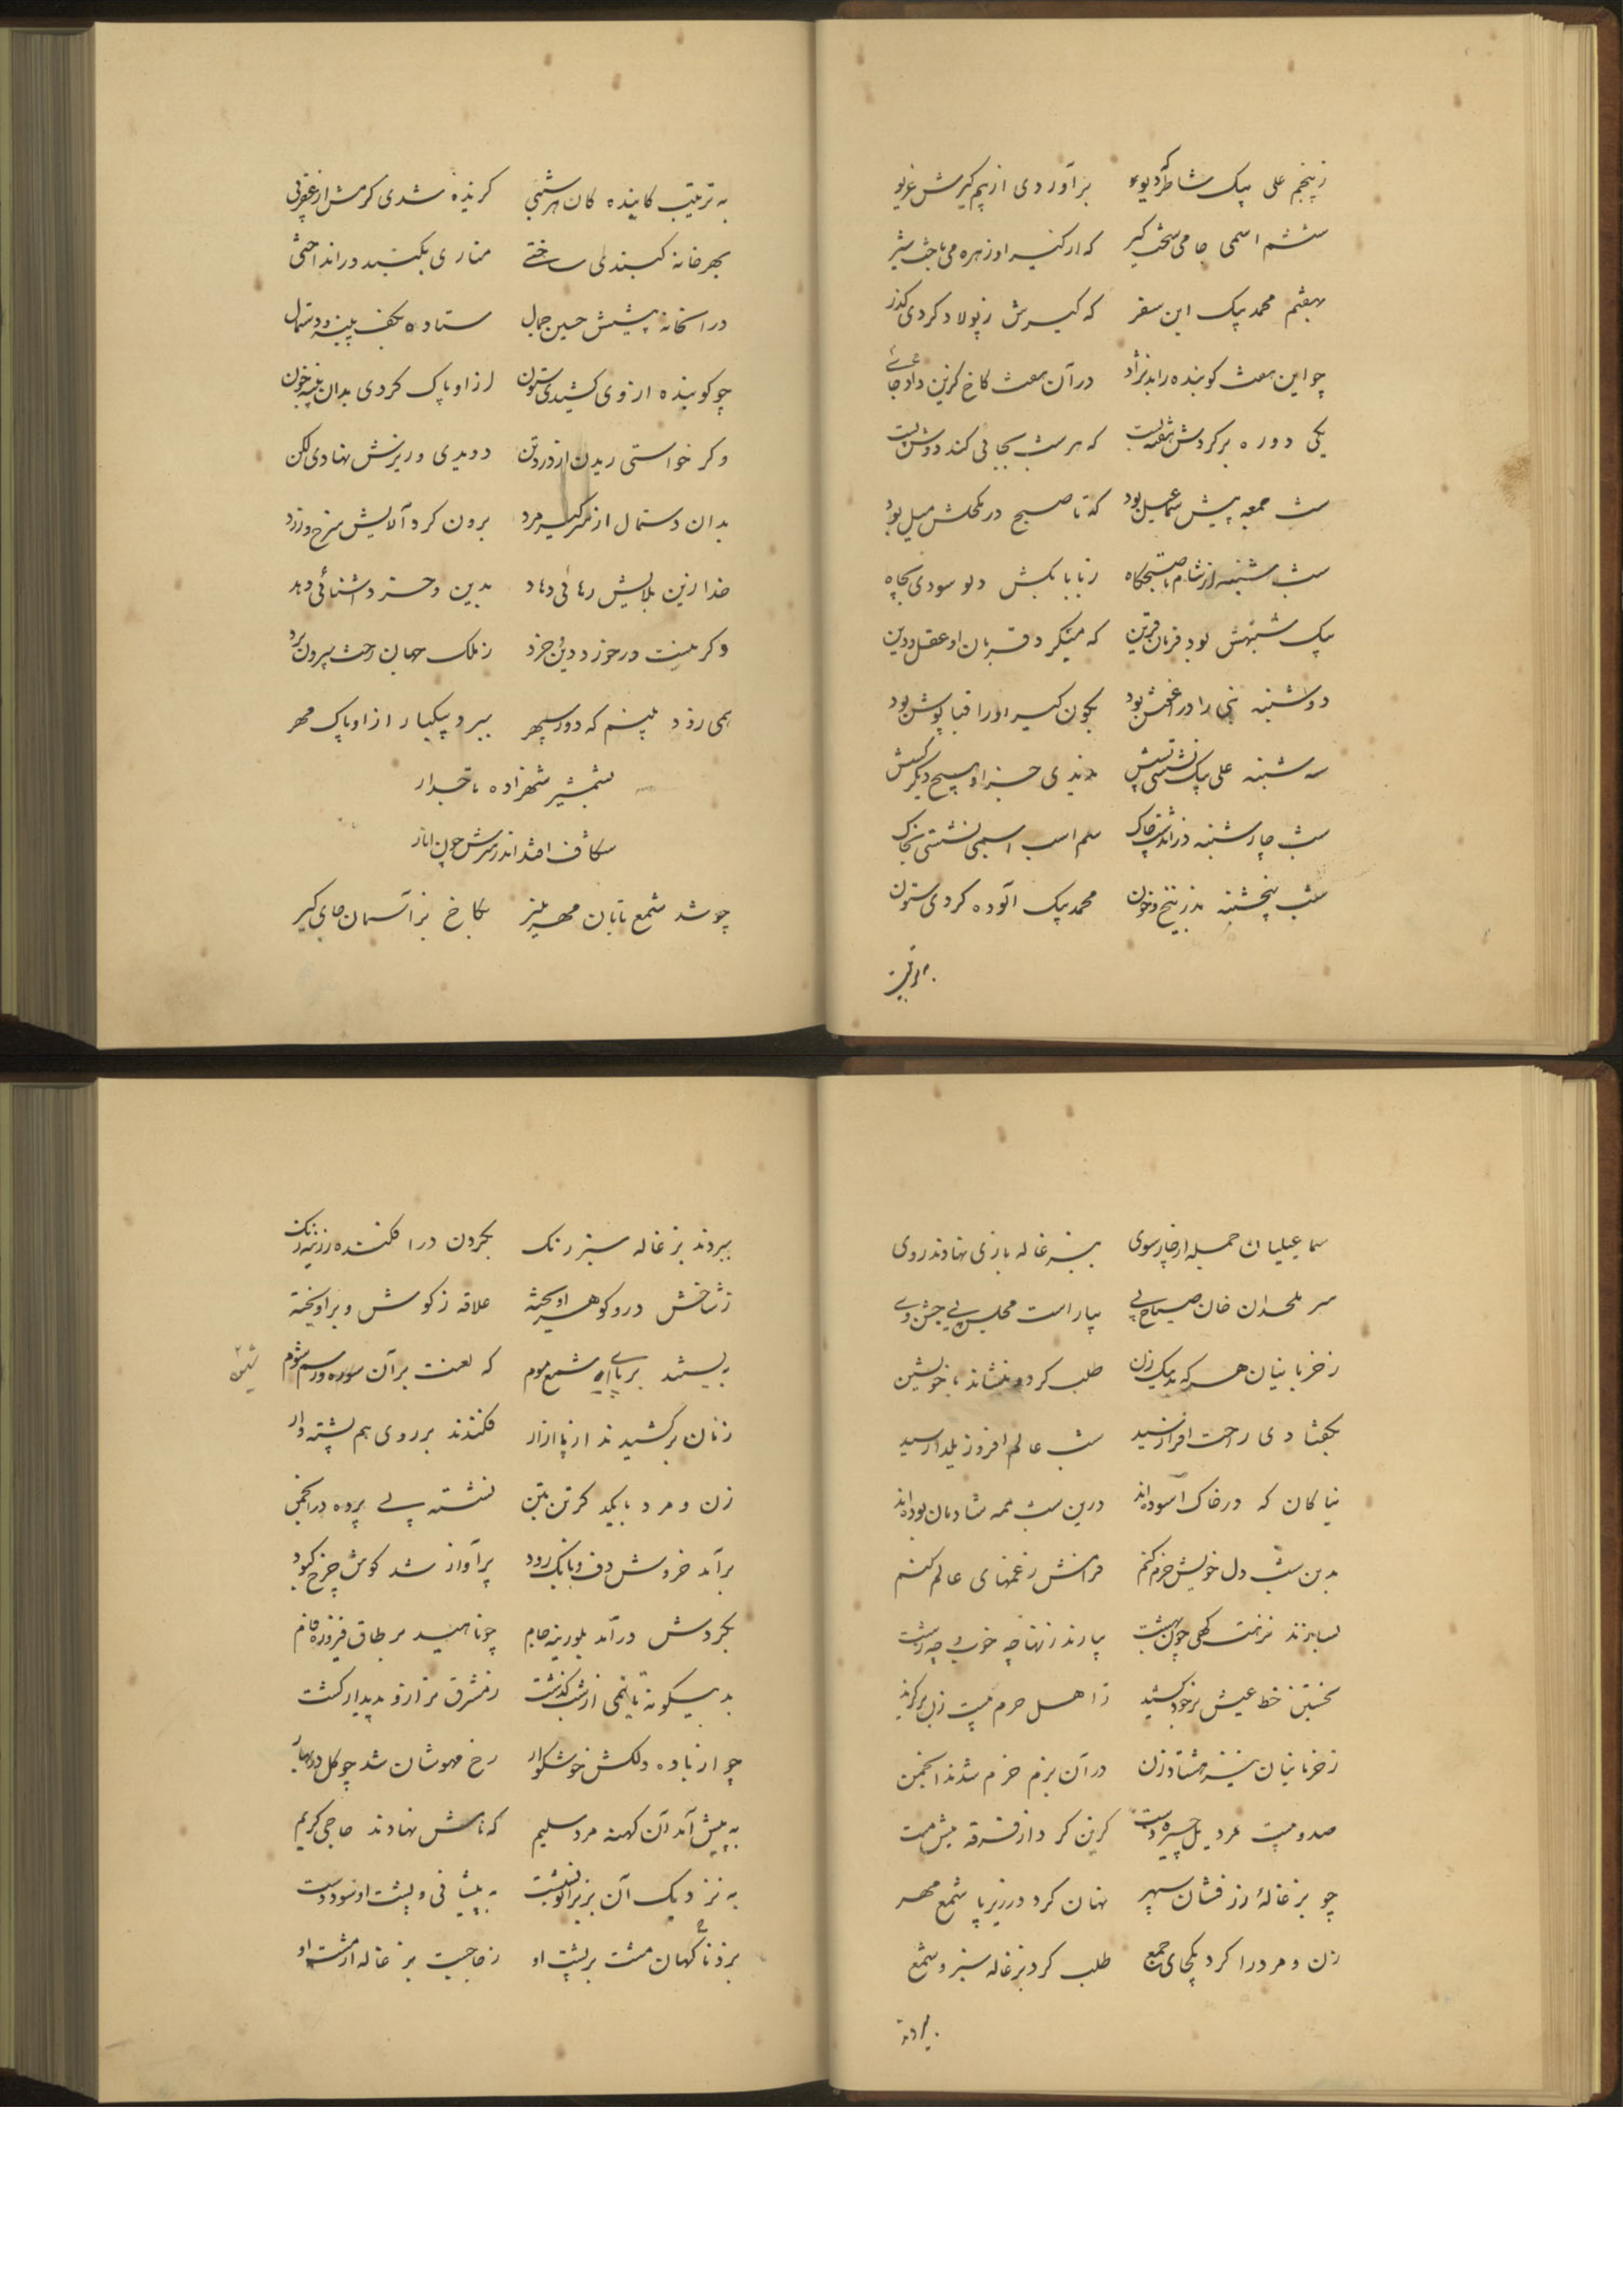 ز پنجم علی بیک شاطر گریو برآوردی از بیم کیرش غریو
ششم اسمی جامی سخت گیر که از کیر او زهره می‌باخت شیر
بهفتم محمد بیک این سفر که کیرش ز پولاد کردی گذر
چو این هفت کوبنده را بد نژاد در آن هفت کاخ گزین داد جای
یکی دوره بر گردش هفته بست که هر شب بجائی کند
شب جمعه پیش سماعیل بود که تا صبح در مکحلش میل بود
شب شنبه از شام تا صبحگاه ز بابا بکش دلو سودی بچاه
یک شنبهش بود قربان قرین که میکرد قربان او عقل و دین
دوشنبه نبی را در آغوش بود بکون کیر او را قباپوش بود
سه شنبه علی بیک نشستی پیش ندیدی جز او هیچ دیگر کسش
شب چارشنبه در چاک سلم اسمی نشستی بخاک
شب پنجشنبه ز خون محمد بیک آلوده کردی ستون
بترتیب
به ترتیب کاینده کان هر شبی گزیده شدی کرمش از عقربی
بهر خانه گنبدی ساختی مناری بگنبد در انداختی
در آنخانه پیشش حسین جمال ستاده بکف پنبه و دستمال
چو کوبنده از وی کشیدی ستون از او پاک کردی بدان پنبه خون
وگر خواستی ریدن از درد تن دویدی و زیرش نهادی لگن
بدان دستمال از سر کیر مرد برون کرد آلایش سرخ و زرد
خدا زین بلایش رهائی دهاد بدین و خرد آشنائی دهد
وگر نیست درخورد دین و خرد ز ملک جهان رخت بیرون برد
همی روز بینم که دور سپهر ببرد بیکبار از او پاک مهر
بشمشیر شهزاده تاجدار
شکاف افتد اندر سرش چون انار
چو شد شمع تابان مهر منیر بکاخ بز آسمان جای گیر
سماعیلیان جمله از چارسوی ببزغاله بازی نهادند روی
سر ملحدان خان صباح پی بیاراست مجلس پی جشن وی
ز خزبانیان هر که بد نیک زن طلب کرد و بنشاند با خویشتن
بگفتا دی راحت افزا رسید شب عالم افروز یلدا رسید
نیاکان که در خاک آسوده‌اند درین شب همه شادمان بوده‌اند
بدین شب دل خویش خرم کنم فرامش ز غمهای عالم کنم
بسازند نزهت گهی چون بهشت بیارند زنها چه خوب و چه زشت
نخستین خط عیش بر خود کشید ز اهل حرم بیست زن برگزید
ز خزبانیان نیز هشتاد زن در آن بزم خرم شدند انجمن
صد و بیست مرد یل چیره دست گزین کرد از فرقه میش مست
چو بزغالهٔ زر فشان سپهر نهان کرد در زیر پا شمع مهر
زن و مرد را کرد یکجای جمع طلب کرد بزغاله سبز و شمع
ببردند
ببردند بزغاله سبز رنگ بگردن در افکنده زرینه زنگ
ز شاخش دو گوهر آویخته علاقه ز گوشش در آویخته
ببستند بر پای شمع موم که لعنت بر آن سوره و رسم شوم
شیون
زنان برکشیدند از پا ازار فکندند بر روی هم پشته وار
زن و مرد با یکدگر تن بتن نشسته بی پرده در انجمن
برآمد خروش دف و بانگ رود پر آواز شد گوش چرخ کبود
بگردش در آمد بلورینه جام چو ناهید بر طاق فیروزه فام
بدینگونه تا نیمی از شب گذشت ز مشرق ترازو پدیدار گشت
چو از باده دلکش خوشگوار رخ مهوشان شد چو گل در بهار
به پیش آمد آن کهنه مرد سلیم که نامش نهادند حاجی کریم
به نزدیک آن بز بزانو نشست به پیشانی و پشت او سود دست
بزد ناگهان مشت بر پشت او ز جا جست بزغاله از مشت او